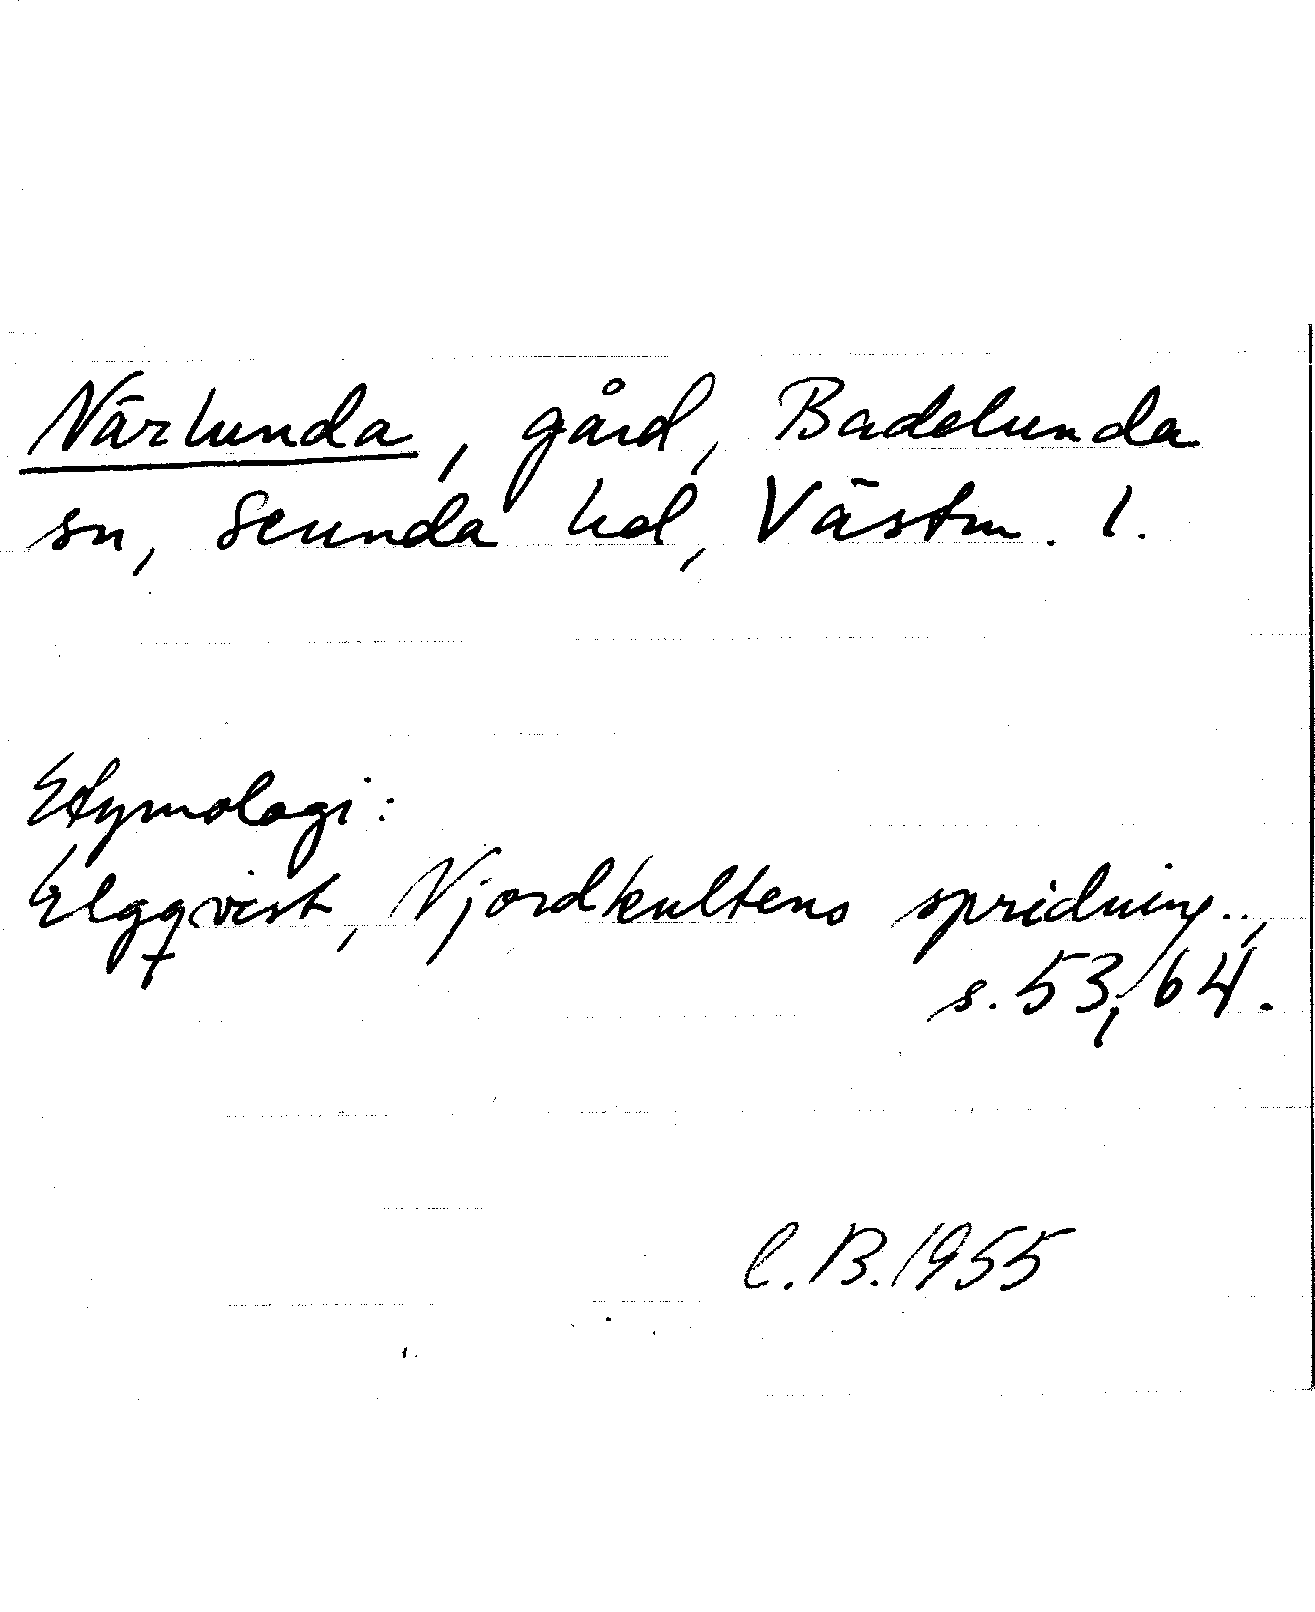 Närlunda, gård, Badelunda
sn, Seunda hd, Västm. l.
Etymologi:
Elgqvist, Njordkultens spridning..,
s. 53, 64.
C.B. 1955